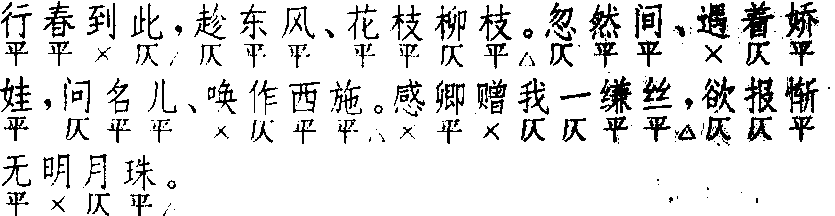 行春到此，趁东风、花枝柳枝。忽然间、遇着娇
平平×仄，仄平平平平仄平△仄平平×仄平
娃，问名儿、唤作西施。感卿赠我一缣丝，欲报惭
平仄平平×仄平平△×平×仄仄平平△仄仄平
无明月珠。
平×仄平△